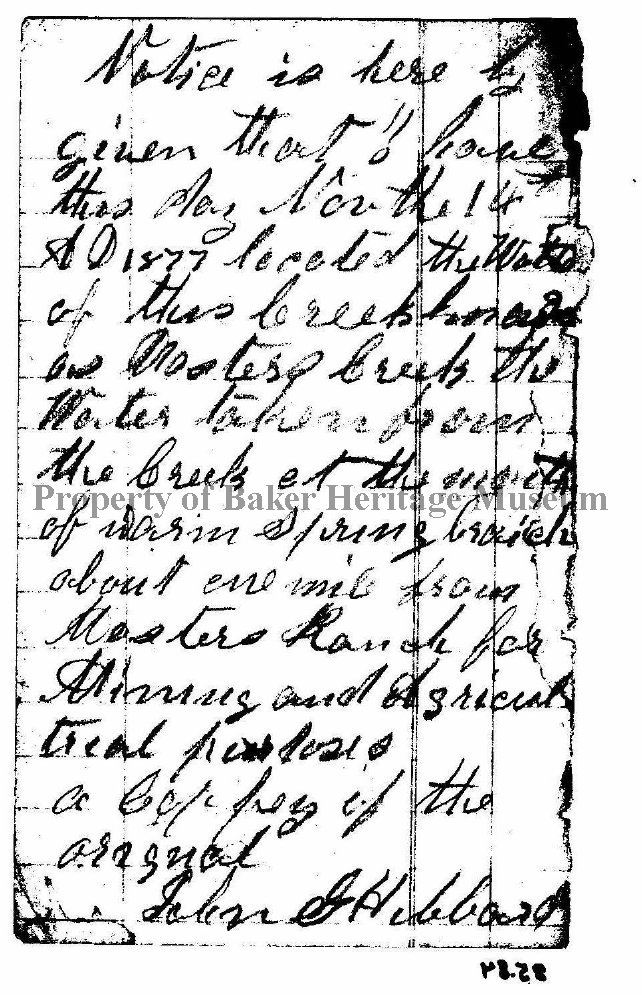 Notice is here by
given that I have
this day Nov the 14th
A D 1877 located the Water
of this Creek known
as Masters Creek the
Water taken from
the Creek at the mouth
Property of Baker Heritage Museum
of warm Spring branch
about one mile from
Masters Ranch for
Mining and Agricul
trial purposes
a Coppey of the
original
John G Hibbard